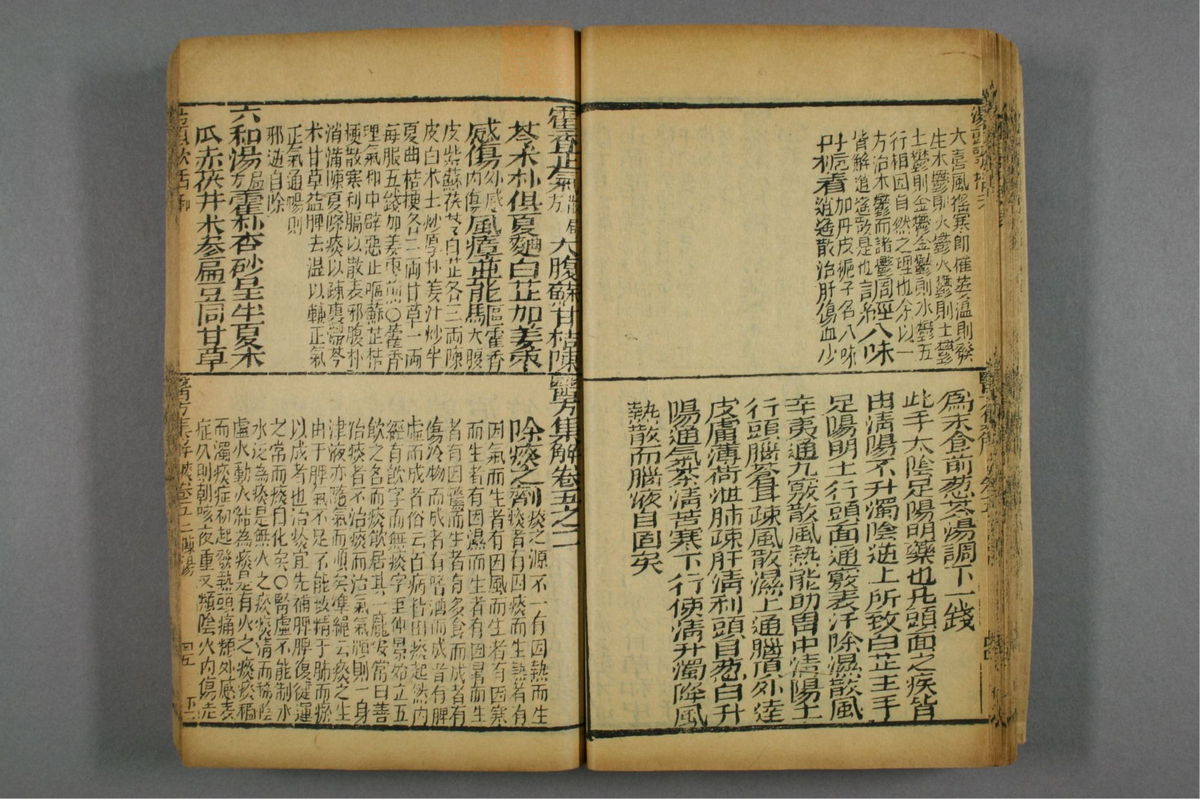 大喜風搖寒卽催萎溫則發
生木鬱則火鬱火鬱則土鬱
土鬱則金鬱金鬱則水鬱五
行相因自然之理也余以一
方治木鬱而諸鬱
皆解逍遙散是也調經八味
丹梔着逍遙散加丹皮梔子名八味
逍遙散治肝傷血少
爲末食前葱茶湯調下一錢
此手太陰足陽明藥也凡頭面之疾皆
由清陽不升濁陰逆上所致白芷主手
足陽明上行頭面通竅表汗除濕散風
辛夷通九竅散風熱能助胃中清陽上
行頭腦蒼耳疎風散濕上通腦頂外達
皮膚薄荷泄肺疎肝清利頭目葱白升
陽通氣茶清苦寒下行使清升濁降風
熱散而腦液自固矣
藿香正氣方大腹蘇甘桔陳
苓朮朴俱夏麯白芷加姜棗
感傷外感內傷風瘴並能驅藿香大腹
皮紫蘇茯苓白芷各三兩陳
皮白朮土炒厚朴姜汁炒半
夏曲桔梗各二兩甘草一兩
每服五錢加姜棗煎○藿香
理氣和中辟惡止嘔蘇芷桔
梗散寒利膈以散表邪腹朴
消滿陳夏除痰以疎裏滯苓
朮甘草益脾去濕以輔正氣
正氣通陽則
邪逆自除
六和湯方藿朴杏砂呈半夏木
瓜赤茯并朮參扁豆同甘草
醫方集解卷五之二
除痰之劑痰之源不一有因熱而生
痰者有因痰而生熱者有
因氣而生者有因風而生者有因寒
而生者有因濕而生者有因暑而生
者有因驚而生者有多食而成者有
傷冷物而成者有嗜酒而成者有脾
虛而成者俗云百病皆由痰起然內
經有飲字而無痰字至仲景始立五
飲之名而痰飲居其一龐安常曰善
治痰者不治痰而治氣氣順則一身
津液亦隨氣而順矣準繩云痰之生
由于脾氣不足不能致精于肺而瘀
以成者也治痰宜先補脾脾復健運
之常而痰自化矣○腎虛不能制水
水泛為痰是無火之痰痰清而稀陰
虛火動火結為痰是有火之痰痰稠
而濁痰症初起發熱頭痛類外感表
症久則朝咳夜重又類陰火內傷走